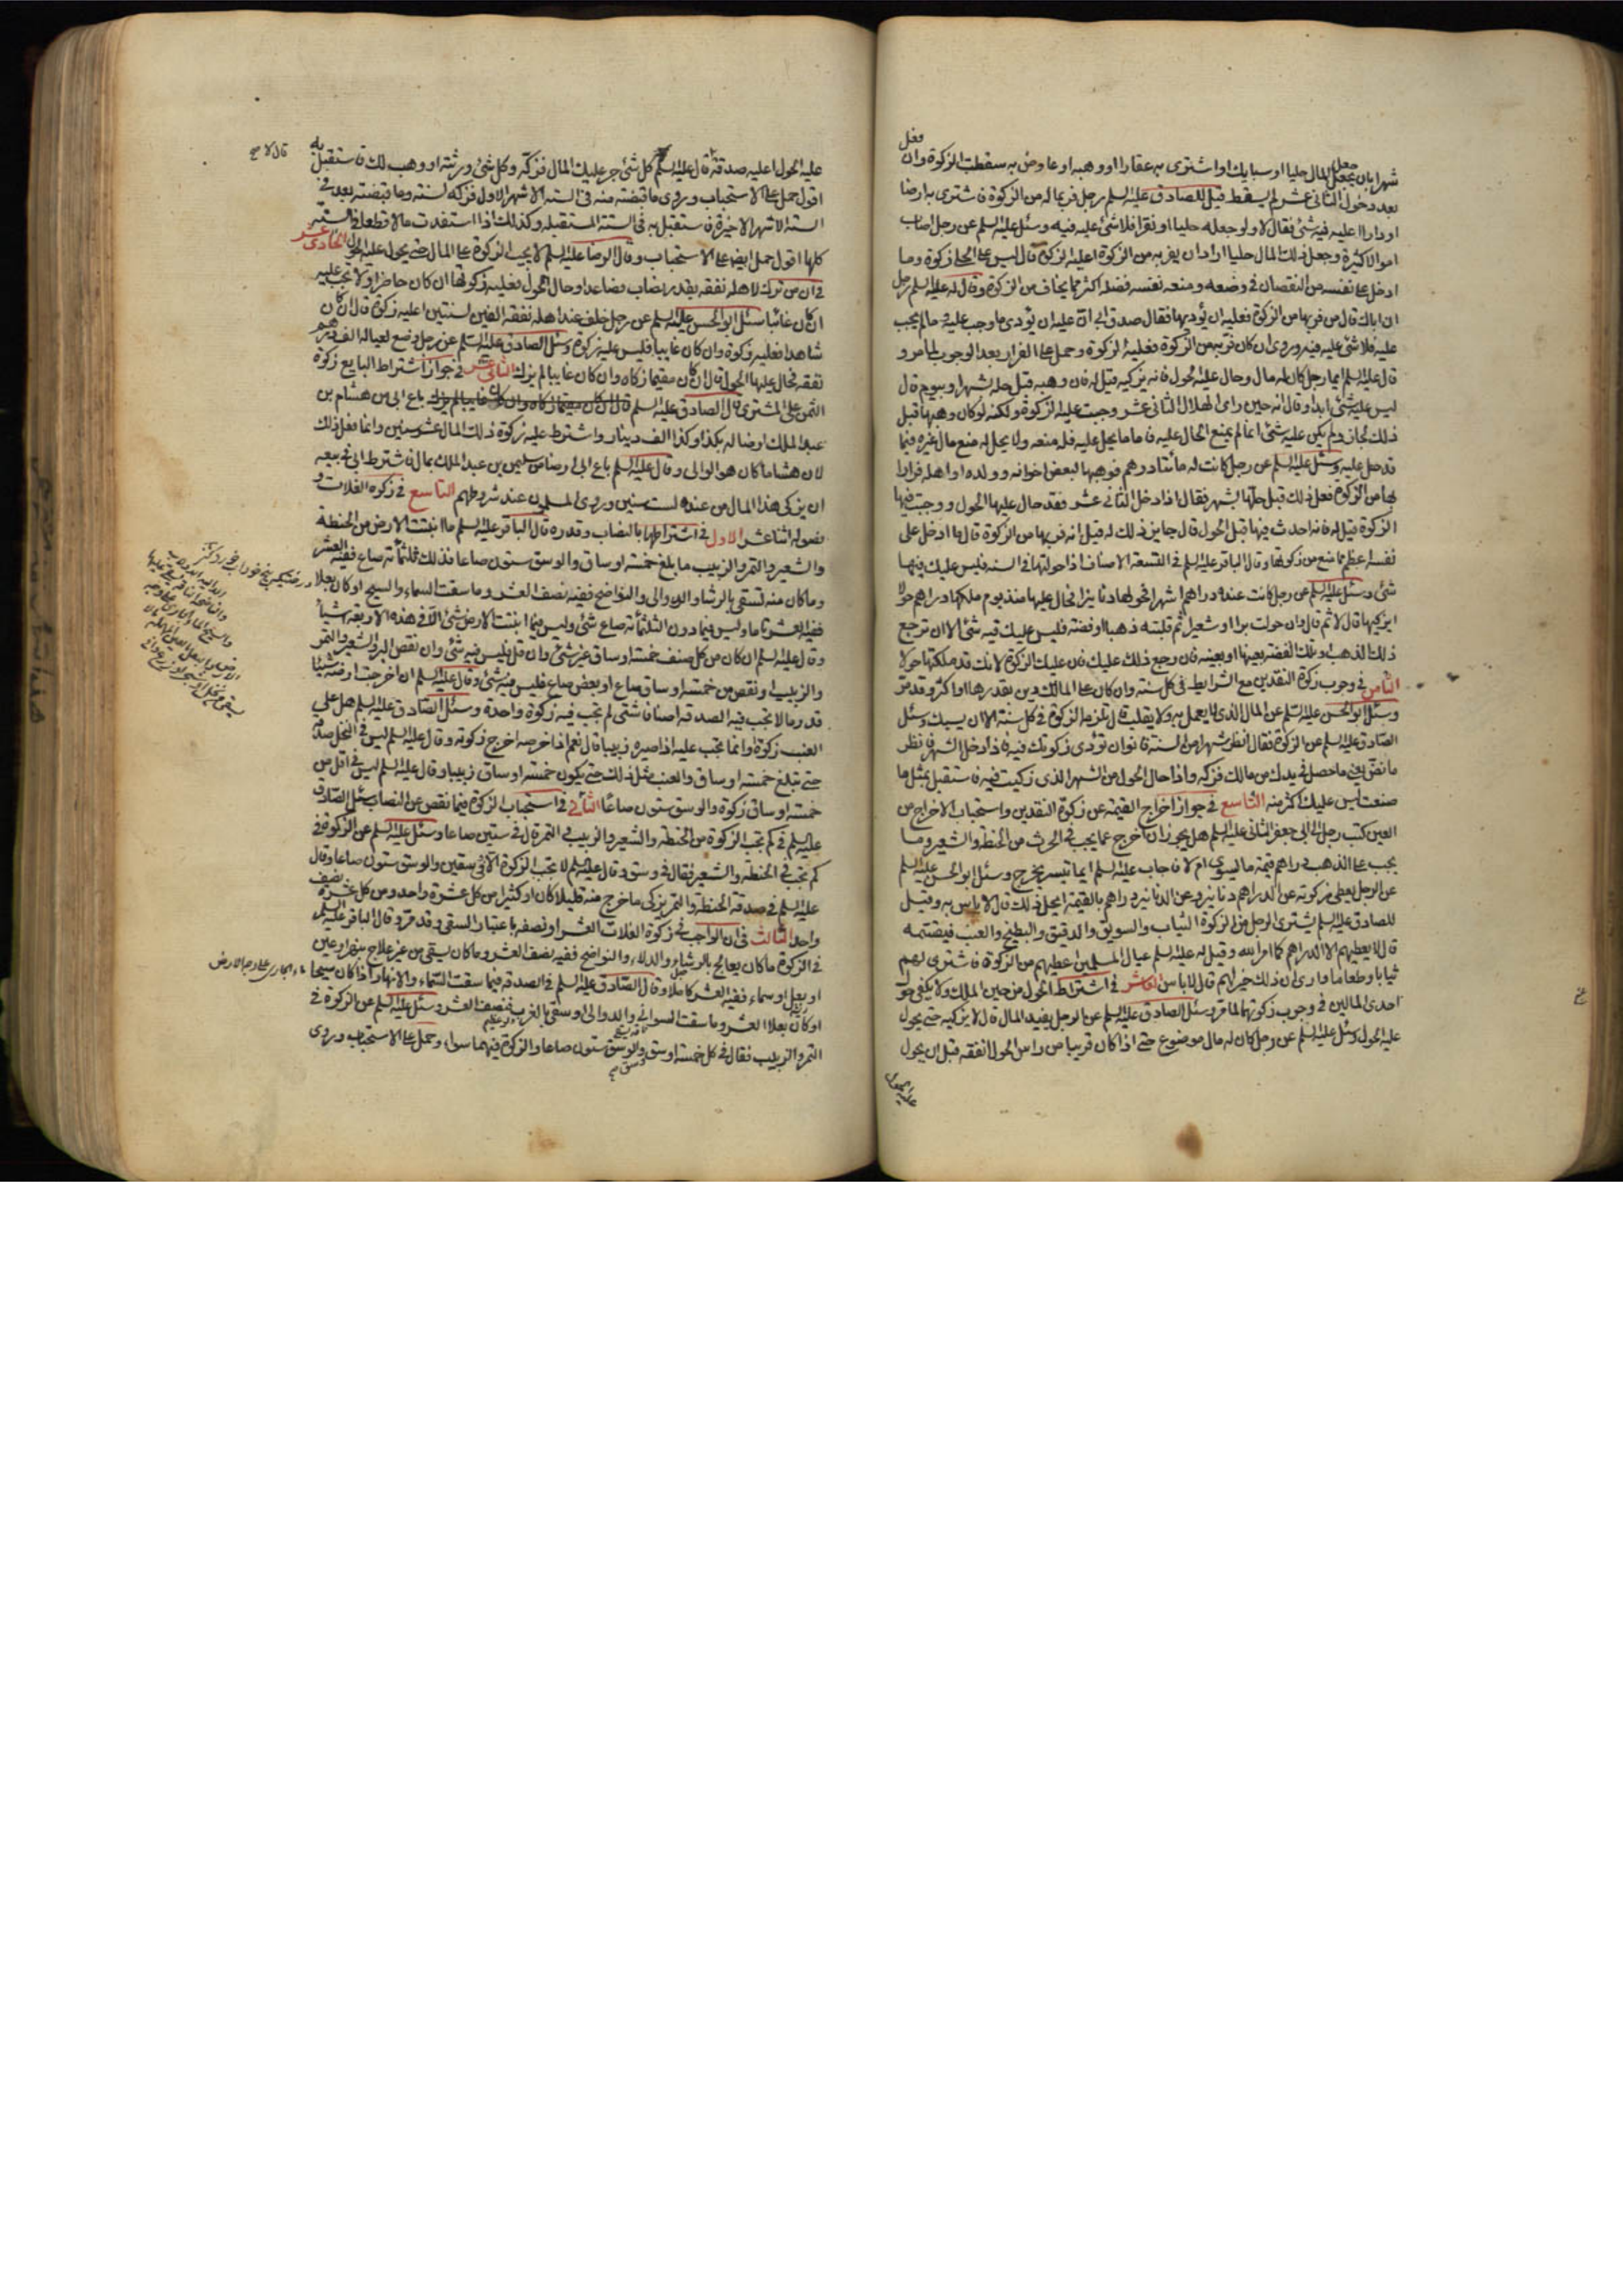 فعل
شهرا بان يجعل المال حليا او سبايك او اشترى به عقارا او وهبه او عاوض به سقطت الزكوة وان
بعد دخول الثانى عشر لم يسقط قيل للصادق عليه السلم رجل فر بماله من الزكوة فاشترى به ارضا
او دارا اعليه فيه شئ فقال لا ولو جعله حليا او نقرا فلا شئ عليه فيه وسئل عليه السلم عن رجل اصاب
اموالا كثيرة وجعل ذلك المال حليا اراد ان يفر به من الزكوة اعليه الزكوة قال ليس على الحلى زكوة وما
ادخل على نفسه من النقصان فى وضعه ومنعه نفسه فضله اكثر مما يخاف من الزكوة وقال له عليه السلم رجل
ان اباك قال من فر بها من الزكوة فعليه ان يؤديها فقال صدق ابى ان عليه ان يؤدى ما وجب عليه وما لم يجب
عليه فلا شئ عليه فيه وروى ان كان فر به من الزكوة فعليه الزكوة وحمل على الفرار بعد الوجوب لما مر و
قال عليه السلم ايما رجل كان له مال وحال عليه الحول فانه يزكيه قيل له فان وهبه قبل حله بشهر او بيوم قال
ليس عليه شئ ابدا وقال انه حين راى الهلال الثانى عشر وجبت عليه الزكوة ولكنه لو كان وهبها قبل
ذلك لجاز ولم يكن عليه شئ انما لم يمنع الحال عليه فاما ما يحل عليه فله منعه ولا يحل له منع مال غيره فيما
قد حل عليه وسئل عليه السلم عن رجل كانت له مأتا درهم فوهبها لبعض اخوانه او ولده او اهله فرارا
بها من الزكوة فعل ذلك قبل حلها بشهر فقال اذا دخل الثانى عشر فقد حال عليها الحول ووجبت فيها
الزكوة قيل له فانه احدث فيها قبل الحول قال جايز ذلك له قيل انه فر بها من الزكوة قال ما ادخل على
نفسه اعظم مما منع من زكوتها وقال الباقر عليه السلم فى التسعة الاصناف اذا حولتها فى السنه فليس عليك فيها
شئ وسئل عليه السلم عن رجل كانت عنده دراهم اشهرا فحولها دنانير فحال عليها منذ يوم ملكها دراهم حولا
ايزكيها قال لا ثم قال وان حولت برا او شعيرا ثم قلبته ذهبا او فضة فليس عليك فيه شئ الا ان ترجع
ذلك الذهب او تلك الفضة بعينها او بعينه فان رجع ذلك عليك فان عليك الزكوة لانك قد ملكتها حولا
الثامن فى وجوب زكوة النقدين مع الشرايط فى كل سنه وان كان على المالك دين بقدرها او اكثر وقد مر
وسئل ابو الحسن عليه السلم عن المال الذى لا يعمل به ولا يقلب قال تلزمه الزكوة فى كل سنة الا ان يسبك وسئل
الصادق عليه السلم عن الزكوة فقال انظر شهرا من السنة فانو ان تؤدى زكوتك فيه فاذا دخل الشهر فانظر
ما نض يعنى ما حصل فى يدك من مالك فزكه واذا حال الحول من الشهر الذى زكيت فيه فاستقبل بمثل ما
صنعت ليس عليك اكثر منه التاسع فى جواز اخراج القيمة عن زكوة النقدين واستحباب الاخراج من
العين كتب رجل الى ابى جعفر الثانى عليه السلم هل يجوز ان اخرج عما يجب فى الحرث من الحنطة والشعير وما
يجب على الذهب دراهم قيمة ما يسوى ام لا فاجاب عليه السلم ايما تيسر يخرج وسئل ابو الحسن عليه السلم
عن الرجل يعطى زكوته عن الدراهم دنانير وعن الدنانير دراهم بالقيمة ايحل ذلك قال لا باس به وقيل
للصادق عليه السلم يشترى الرجل من الزكوة الثياب والسويق والدقيق والبطيخ والعنب فيقسمه
قال لا يعطيهم الا الدراهم كما امر الله وقيل له عليه السلم عيال المسلمين اعطيهم من الزكوة فاشترى لهم
ثيابا وطعاما وارى ان ذلك خير لهم قال لا باس العاشر فى اشتراط الحول من حين الملك ولا يكفى حول
احدى المالين فى وجوب زكوتهما لما مر وسئل الصادق عليه السلم عن الرجل يفيد المال قال لا يزكيه حتى يحول
عليه الحول وسئل عليه السلم عن رجل كان له مال موضوع حتى اذا كان قريبا من راس الحول انفقه قبل ان يحول
عليه الحول اعليه صدقة قال لا وقال عليه السلم كل شئ جر عليك المال فزكه وكل شئ ورثته او وهب لك فاستقبل به
اقول حمل على الاستحباب وروى ما قبضته منه فى الستة الاشهر الاول فزكه لسنته وما قبضته بعد فى
الستة الاشهر الاخيرة فاستقبل به فى السنة المستقبلة وكذلك اذا استفدت مالا منقطعا فى السنة
كلها اقول حمل ايضا على الاستحباب وقال الرضا عليه السلم لا يجب الزكوة على المال حتى يحول عليه الحول الحادى عشر
فى ان من ترك لاهله نفقة بقدر نصاب فصاعدا وحال الحول فعليه زكوتها ان كان حاضرا ولا تجب عليه
ان كان غائبا سئل ابو الحسن عليه السلم عن رجل خلف عند اهله نفقة الفين لسنتين اعليه زكوة قال ان كان
شاهدا فعليه زكوة وان كان غايبا فليس عليه زكوة وسئل الصادق عليه السلم عن رجل وضع لعياله الف درهم
نفقة فحال عليها الحول قال ان كان مقيما زكاه وان كان غايبا لم يزك الثانى عشر فى جواز اشتراط البايع زكوة
الثمن على المشترى قال الصادق عليه السلم باع ابى من هشام بن
عبد الملك ارضا له بكذا وكذا الف دينار واشترط عليه زكوة ذلك المال عشر سنين وانما فعل ذلك
لان هشاما كان هو الوالى وقال عليه السلم باع ابى ارضا من سليمن بن عبد الملك بمال فاشترط ابى فى بيعه
ان يزكى هذا المال من عنده لست سنين وروى المسلمون عند شروطهم التاسع فى زكوة الغلات و
فصوله اثنا عشر الاول فى اشتراطها بالنصاب وقدره قال الباقر عليه السلم ما انبتت الارض من الحنطة
والشعير والتمر والزبيب ما بلغ خمسة اوساق والوسق ستون صاعا فذلك ثلثمأة صاع ففيه العشر
وما كان منه تسقى بالرشا والدوالى والنواضح ففيه نصف العشر وما سقت السماء والسيح او كان بعلا
ففيه العشر تاما وليس فيما دون الثلثمأة صاع شئ وليس فيما انبتت الارض شئ الا فى هذه الاربعة اشيأ
وقال عليه السلم ان كان من كل صنف خمسة اوساق غير شئ وان قل فليس فيه شئ وان نقص البر والشعير والتمر
والزبيب او نقص من خمسة اوساق صاع او بعض صاع فليس فيه شئ وقال عليه السلم ان اخرجت ارضه شيئا
قدر ما لا تجب فيه الصدقة اصنافا شتى لم تجب فيه زكوة واحدة وسئل الصادق عليه السلم هل على
العنب زكوة او انما تجب عليه اذا صيره زبيبا قال نعم اذا خرصه اخرج زكوته وقال عليه السلم ليس فى النخل صدقة
حتى تبلغ خمسة اوساق والعنب مثل ذلك حتى يكون خمسة اوساق زبيبا وقال عليه السلم ليس فى اقل من
خمسة اوساق زكوة والوسق ستون صاعا الثانى فى استحباب الزكوة فيما نقص عن النصاب سئل الصادق
عليه السلم فى كم تجب الزكوة من الحنطة والشعير والزبيب والتمر قال فى ستين صاعا وسئل عليه السلم عن الزكوة فى
كم تجب فى الحنطة والشعير فقال فى وسق وقال عليه السلم لا تجب الزكوة الا فى وسقين والوسق ستون صاعا وقال
عليه السلم فى صدقة الحنطة والتمر يزكى ما خرج منه قليلا كان او كثيرا من كل عشرة واحد ومن كل عشرة نصف
واحد الثالث فى ان الواجب فى زكوة الغلات العشر او نصفه باعتبار السقى وقد مر وقال الباقر عليه السلم
فى الزكوة ما كان يعالج بالرشاء والدلاء والنواضح ففيه نصف العشر وما كان يسقى من غير علاج بنهر او عين
او بعل او سماء ففيه العشر كاملا وقال الصادق عليه السلم فى الصدقة فيما سقت السماء والانهار اذا كان سيحا
او كان بعلا العشر وما سقت السوانى والدوالى او سقى بالغرب فنصف العشر وسئل عليه السلم عن الزكوة فى
التمر والزبيب فقال فى كل خمسة اوسق وسق والوسق ستون صاعا والزكوة فيهما سواء وحمل على الاستحباب وروى
ماء الجارى على وجه الارض